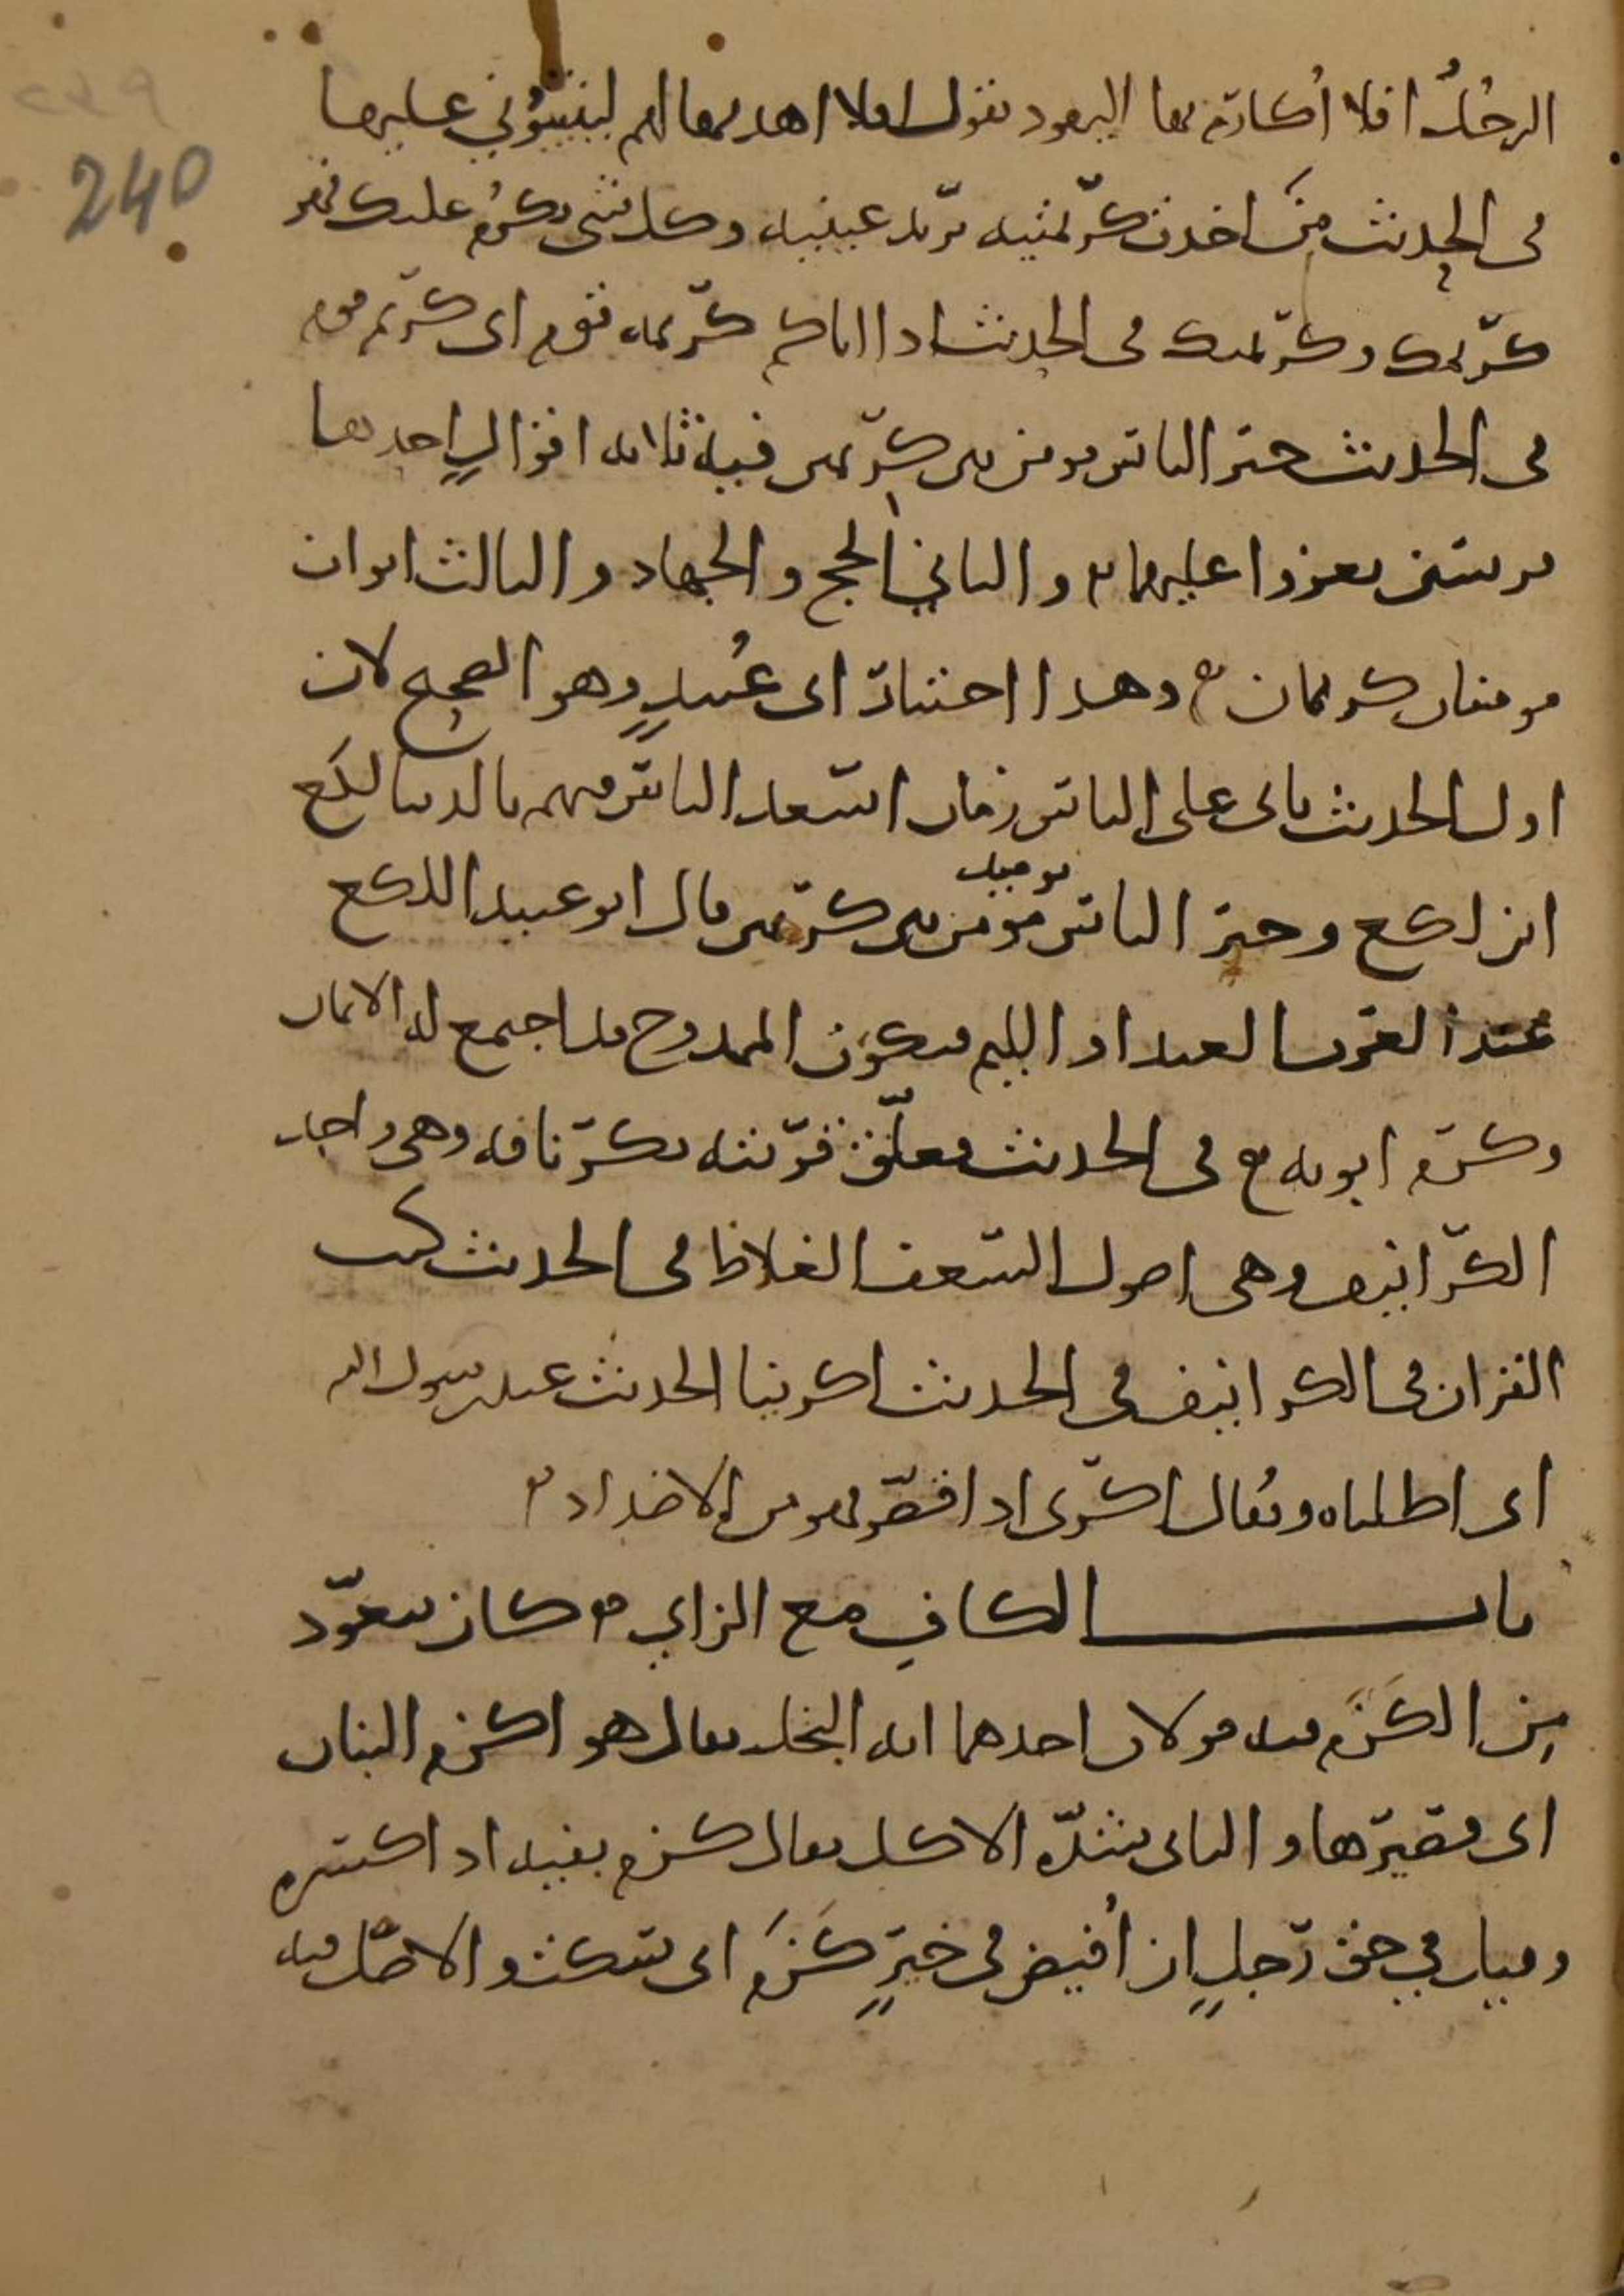 ٢٣٩
240
الرجلُ افلا أُكارم بها اليهود يقول افلا اهديها لهم ليثيبُوني عليها
في الحديث مَن اخذت كرِيمتَيه يريد عينيه وكل شي يكرُم عليك فهو
كريمك وكريمتك في الحديث اذا اتاكم كريمة قوم اى كريم قوم
في الحديث خير الناس مومن بين كريمين فيه ثلاثة اقوالٍ احدها
فرسين يغزوا عليهما والثاني الحج والجهاد والثالث ابوان
مومنان كريمان وهذا اختيار ابى عُبيدٍ وهو الصحيح لان
اول الحديث ياتى على الناس زمان اسعد الناس فيهم بالدنيا لكع
ابن لكع وخير الناس يوميذ مؤمن بين كريمين قال ابو عبيد اللكع
عند العرب العبد او الليم فيكون الممدوح قد اجتمع له الايمان
وكرم ابويه في الحديث معلق قربته بكرنافة وهي واحد
الكرانيف وهي اصول السعف الغلاظ في الحديث كتب
القران في الكرانيف في الحديث اكرينا الحديث عند رسول الله
اى اطلناه ويُقال اكرى اذا قصر فهو من الاضداد
باب الكاف مع الزاي كان يتعوّذ
مِن الكَزَم فيه قولان احدهما انه البخل يقال هو اكزم البنان
اى قصيرها والثاني شدة الاكل يقال كزم بفيه اذا كسره
وقيل في حق رجلٍ ان أُفيض في خيرٍ كَزَمَ اى سكت والاصل فيه